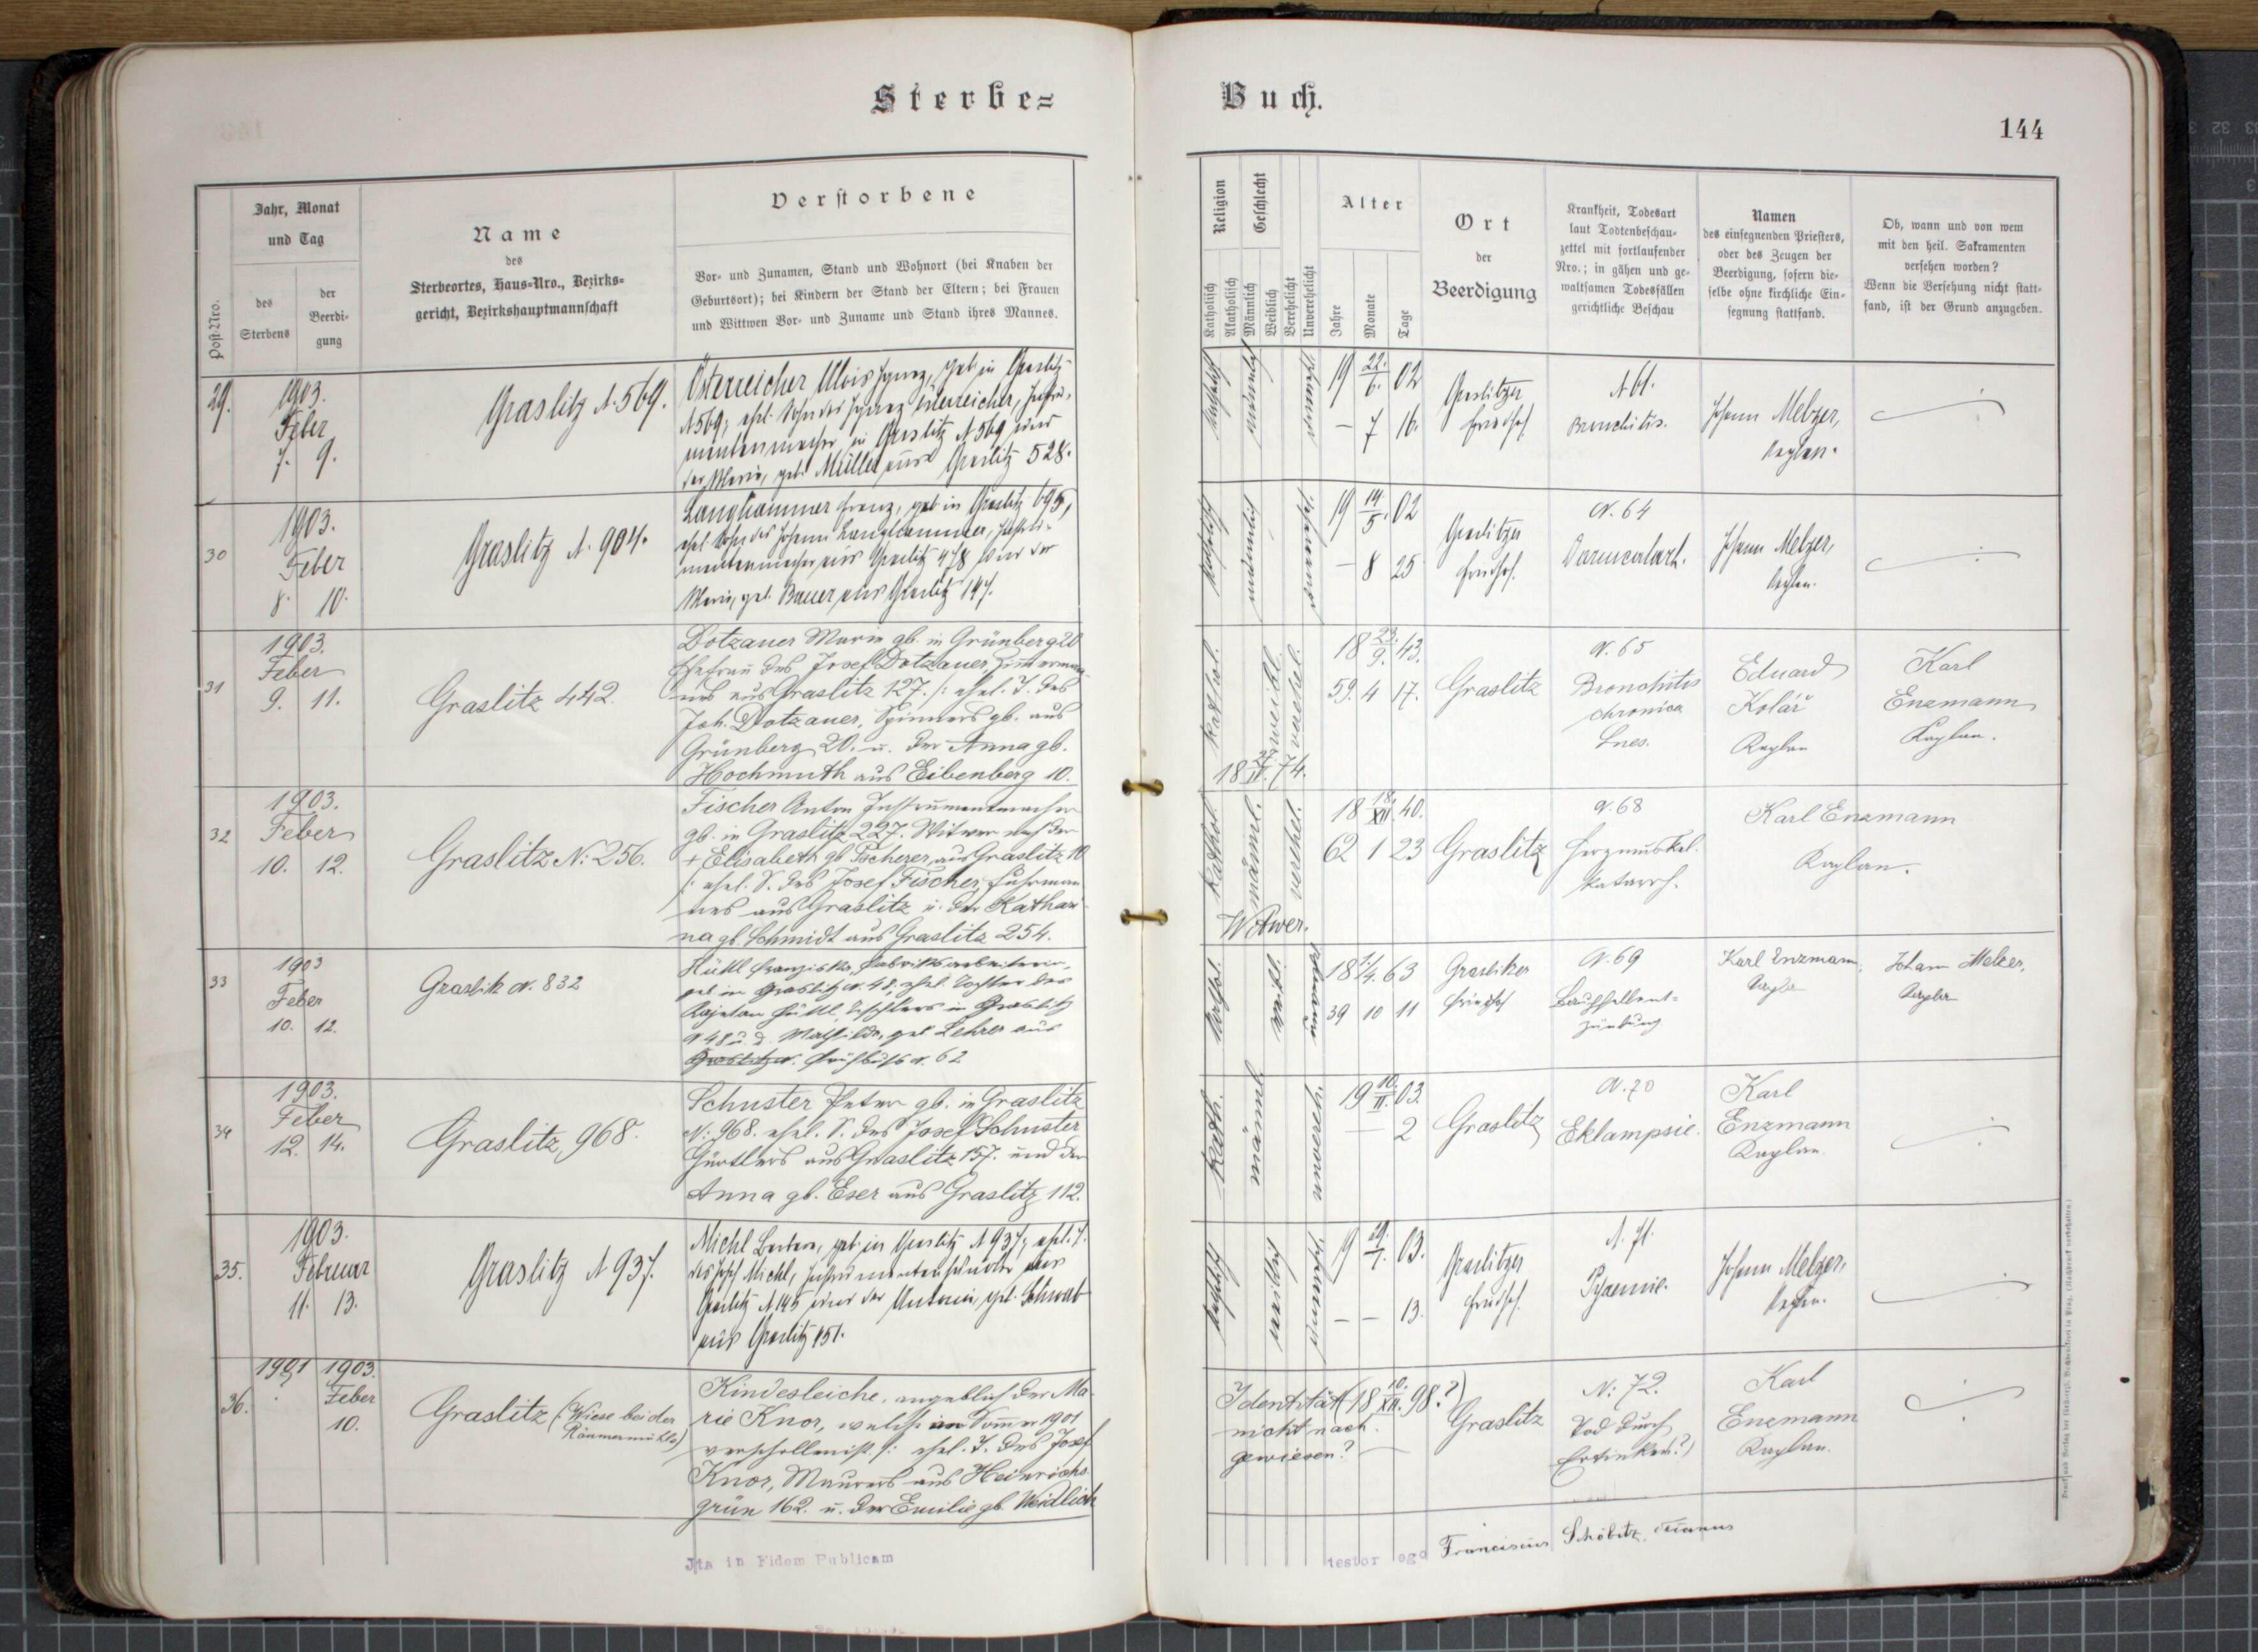 Sterbe=
Buch.
144
Post-Nro.
Jahr, Monat
und Tag
des
Sterbens
der
Beerdi-
gung
Name
des
Sterbeortes, Haus=Nro., Bezirks=
gericht, Bezirkshauptmannschaft
Verstorbene
Vor= und Zunamen, Stand und Wohnort (bei Knaben der
Geburtsort); bei Kindern der Stand der Eltern; bei Frauen
und Wittwen Vor= und Zuname und Stand ihres Mannes.
Religion
Katholisch
Akatholisch
Geschlecht
Männlich
Weiblich
Verehelicht
Unverehelicht
Alter
Jahre
Monate
Tage
Ort
der
Beerdigung
Krankheit, Todesart
laut Todtenbeschau-
zettel mit fortlaufender
Nro.; in gähen und ge-
waltsamen Todesfällen
gerichtliche Beschau
Namen
des einsegnenden Priesters,
oder des Zeugen der
Beerdigung, sofern die-
selbe ohne kirchliche Ein-
segnung stattfand.
Ob, wann und von wem
mit den heil. Sakramenten
versehen worden?
Wenn die Versehung nicht statt-
fand, ist der Grund anzugeben.
29.
1903.
Feber
7. 9.
Graslitz N. 569.
Österreicher Alois Ignaz, geb. in Graslitz
N 569; ehel. Sohn des Ignaz Österreicher, Instru-
mentenmacher in Graslitz N 569 und
der Maria, geb. Müller aus Graslitz 528.
katholisch
männlich
unverehel.
19 22./6. 02
– 7 16.
Graslitzer
Friedhof
N 61.
Bronchitis.
Johann Melzer,
Kaplan.
30
1903.
Feber
8. 10.
Graslitz N. 904.
Langhammer Franz, geb. in Graslitz 695,
ehel. Sohn des Johann Langhammer, Instru-
mentenmacher aus Graslitz 478 und der
Maria, geb. Bauer aus Graslitz 147.
katholisch
männlich
unverehel.
19 14/5. 02
– 8 25
Graslitzer
Friedhof.
N. 64
Darmcatarh.
Johann Melzer,
Kaplan.
31
1903.
Feber
9. 11.
Graslitz 442.
Dotzauer Marie gb. in Grünberg 20
Ehefrau des Josef Dotzauer, Zimmerman
nes aus Graslitz 127. /: ehel. T. des
Joh. Dotzauer, Spinners gb. aus
Grünberg 20. u. der Anna gb.
Hochmuth aus Eibenberg 10.
kathol.
weibl.
verehel.
18 /II. 74.
18 23./9. 43.
59. 4 17.
Graslitz
N. 65
Bronchitis
chronica
Eduard
Kolář
Kaplan
Karl
Enzmann
Kaplan.
32
1903.
Feber
10. 12.
Graslitz N: 256.
Fischer Anton Instrumentenmacher
gb. in Graslitz 227. Witwer nach der
+ Elisabeth gb Tscherer, aus Graslitz 10
/: ehel. S. des Josef Fischer, Fuhrman
nes aus Graslitz u. der Kathari-
na gb. Schmidt aus Graslitz 254.
kathol.
männl.
verehel.
Witwer.
18 18./XII. 40.
62 1 23
Graslitz
N. 68
Herzmuskel.
katarrh.
Karl Enzmann
Kaplan.
33
1903
Feber
10. 12.
Graslitz N. 832
Hüttl Franziska, Fabriksarbeiterin,
geb in Graslitz N. 48, ehel. Tochter des
Kajetan Hüttl, Tischlers in Graslitz
N 48 u. d. Mathilde, geb Lehrer aus
Graslitz N. Frühbuß N. 62
kathol.
weibl.
unverehel.
18 1./4. 63
39 10 11
Graslitzer
Friedhof
N. 69
Bauchfellent=
zündung
Karl Enzmann,
Kaplan
Johann Melzer,
Kaplan
34
1903.
Feber
12. 14.
Graslitz 968.
Schuster Peter gb. in Graslitz
N: 968. ehel. S. des Josef Schuster
Gürtlers aus Graslitz 157. und der
Anna gb. Eser aus Graslitz 112.
kath.
männl.
unvereh.
19 10./II. 03.
— 2
Graslitz
N. 70
Eklampsie.
Karl
Enzmann
Kaplan.
35.
1903.
Februar
11. 13.
Graslitz N 937.
Michl Barbara, geb. in Graslitz N 937, ehel. T.
des Josef Michl, Instrumentenhändler aus
Graslitz N 145 und der Antonia, geb. Schwab
aus Graslitz 151.
katholisch
weiblich
unverehel.
19 29./1. 03.
– – 13.
Graslitzer
Friedhof.
N. 71.
Pyaemie.
Johann Melzer,
Kaplan.
36.
1901 1903.
Feber
10.
Graslitz (Wiese bei der
Räumermühle)
Kindesleiche, angeblich der Ma-
rie Knor, welche im Sommer 1901
verschollen ist /: ehel. T. des Josef
Knor, Maurers aus Heinrichs
grün 162. u. der Emilie gb. Weidlich
Identität (18 10./XII. 98.?)
nicht nach-
gewiesen?
Graslitz
N: 72.
Tod durch
Ertinken?)
Karl
Enzmann
Kaplan.
Ita in Fidem Publicam
testor ego Franciscus Schöbitz, decanus